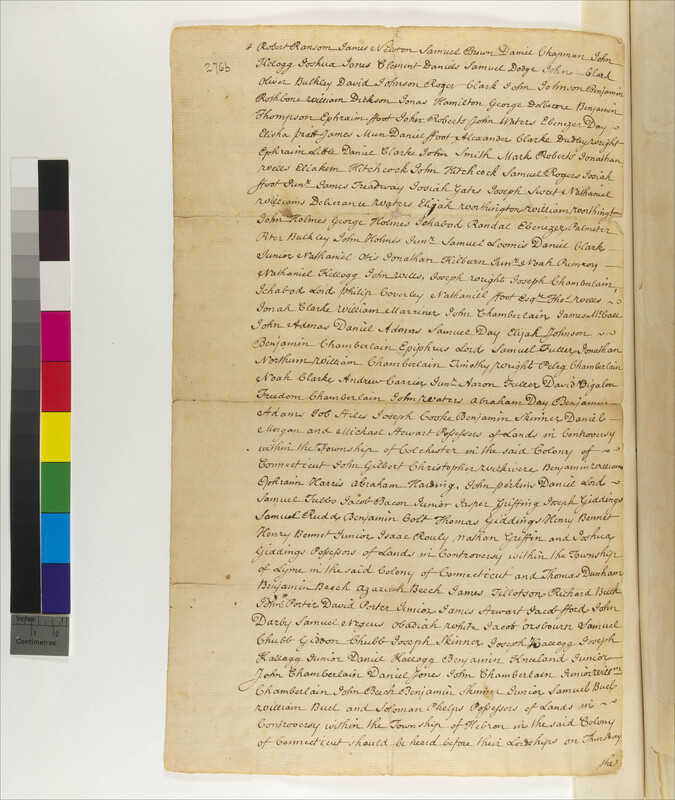 276b
Robert Ransom James Newton Samuel Brown Daniel Chapman John
Kellogg Joshua Jones Clement Daniels Samuel Dodge John Clark
Oliver Bulkley David Johnson Roger Clark John Johnson Benjamin
Rathbone William Dickson Jonas Hamilton George Benjamin
Thompson Ephraim ffoot John Roberts John Waters Ebenezer Day
Elisha pratt James Mun Daniel ffoot Alexander Clarke Dudley wright
Ephraim Little Daniel Clarke John Smith Mark Roberts Jonathan
wells Eliakim Hitchcock John Hitchcock Samuel Rogers Josiah
ffoot Junr. James Treadway Josiah Gates Joseph Swet Nathaniel
williams Deliverance waters Elijah worthington William worthingt
John Holmes George Holmes Ichabod Randal Ebenezer Palmeter
Peter Bulkley John Holmes Junr. Samuel Loomis Daniel Clark
Junior Nathaniel Otis Jonathan Kilburn Junr. Noah Pumroy
Nathaniel Kellogg John wells, Joseph wright Joseph Chamberlain,
Ichabod Lord philip Coverley Nathaniel ffoot Esqr. Thos. wells
Jonah Clarke William Marriner John Chamberlain James McCall
John Admas Daniel Admas Samuel Day Elijah Johnson
Benjamin Chamberlain Epiphrus Lord Samuel Fuller Jonathan
Northum William Chamberlain Timothy wright Peleg Chamberlain
Noah Clarke Andrew Carrier Junr. Aaron Fuller David Bigalou
Freedom Chamberlain John waters Abraham Day Benjamin
Adams Job Joseph Cooke Benjamin Skinner Daniel
Morgan and Michael Stewart Possessors of Lands in Controversy
within the Township of Colchester in the said Colony of
Connecticut John Gilbert Christopher Benjamin William
Ephraim Harris Abraham Harding, John perkin Daniel Lord
Samuel Tubbs Jacob Bacon Junior Jasper Griffing Joseph Giddings
Samuel Rudd Benjamin Colt Thomas Giddings Henry Bennet
Henry Bennet Junior Isaac Rouly, Nathan Griffin and Joshua
Giddings Possessors of Lands in Controversy within the Township
of Lyme in the said Colony of Connecticut and Thomas Dunham
Benjamin Beech Azariah Beech James Tillotson Richard
John Porter David Porter Junior James Stewart Jacob fford John
Darby Samuel Obadiah white Jacob Orsbourn Samuel
Chubb Gideon Chubb Joseph Skinner Joseph Kallogg Joseph
Kallogg Junior Daniel Kallogg Benjamin Kneeland Junior
John Chamberlain Daniel Jones John Chamberlain Junior Willm.
Chamberlain John Beech Benjamin Skinner Junior Samuel Buel
William Buel and Soloman Phelps Possessors of Lands in
Controversy within the Township of Hebron in the said Colony
of Connecticut should be heard before their Lordships on Thursday
the
Inches 1 2
Centimetres